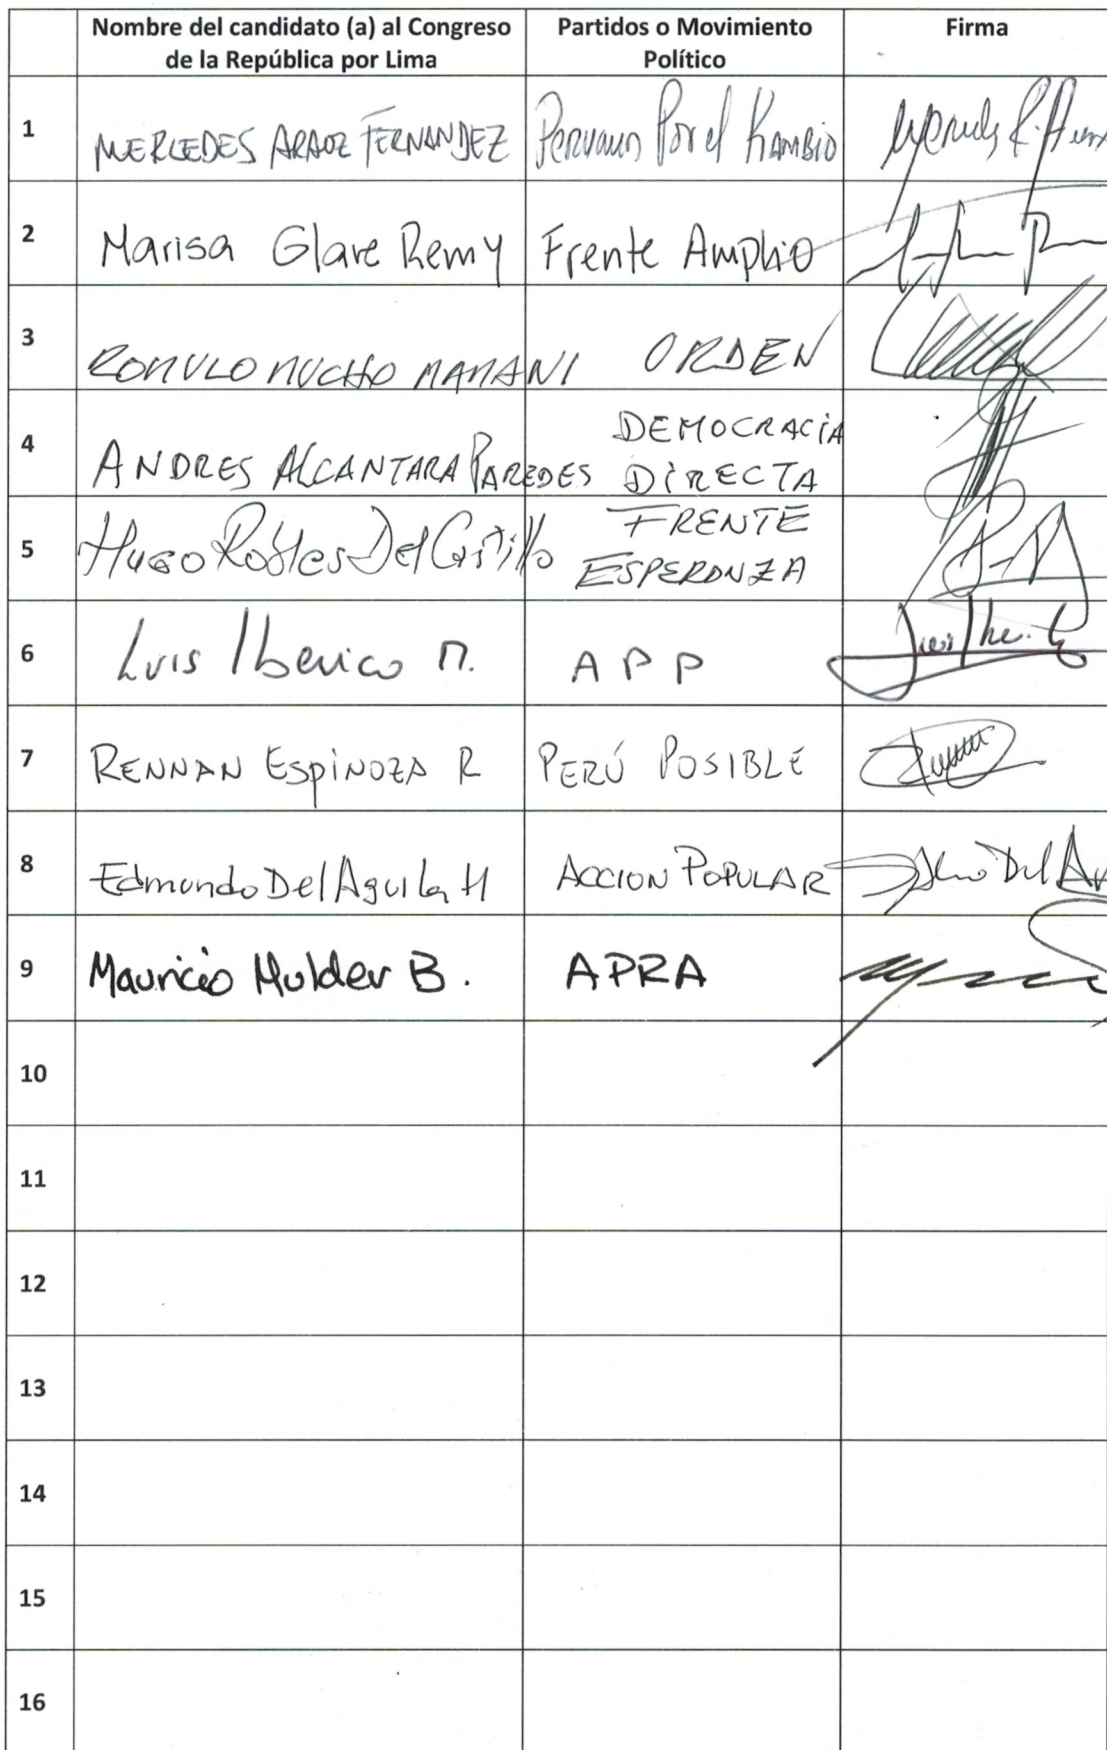 Nombre del candidato (a) al Congreso de la República por Lima Partidos o Movimiento Político Firma
1 MERCEDES ARAOZ FERNANDEZ Peruanos Por el Kambio
2 Marisa Glave Remy Frente Amplio
3 ROMULO MUCHO MAMANI ORDEN
4 ANDRES ALCANTARA PAREDES DEMOCRACIA DIRECTA
5 Hugo Robles Del Castillo FRENTE ESPERANZA
6 Luis Iberico M. APP
7 RENNAN ESPINOZA R PERÚ POSIBLE
8 Edmundo Del Aguila H ACCION POPULAR
9 Mauricio Mulder B. APRA
10
11
12
13
14
15
16